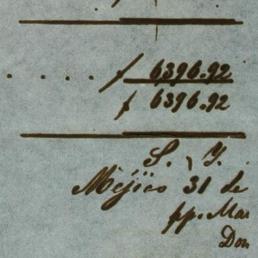 . . . . . $ 6396.92
$ 6396.92
S. Y.
Méjico 31 de
pp. Mar
Don